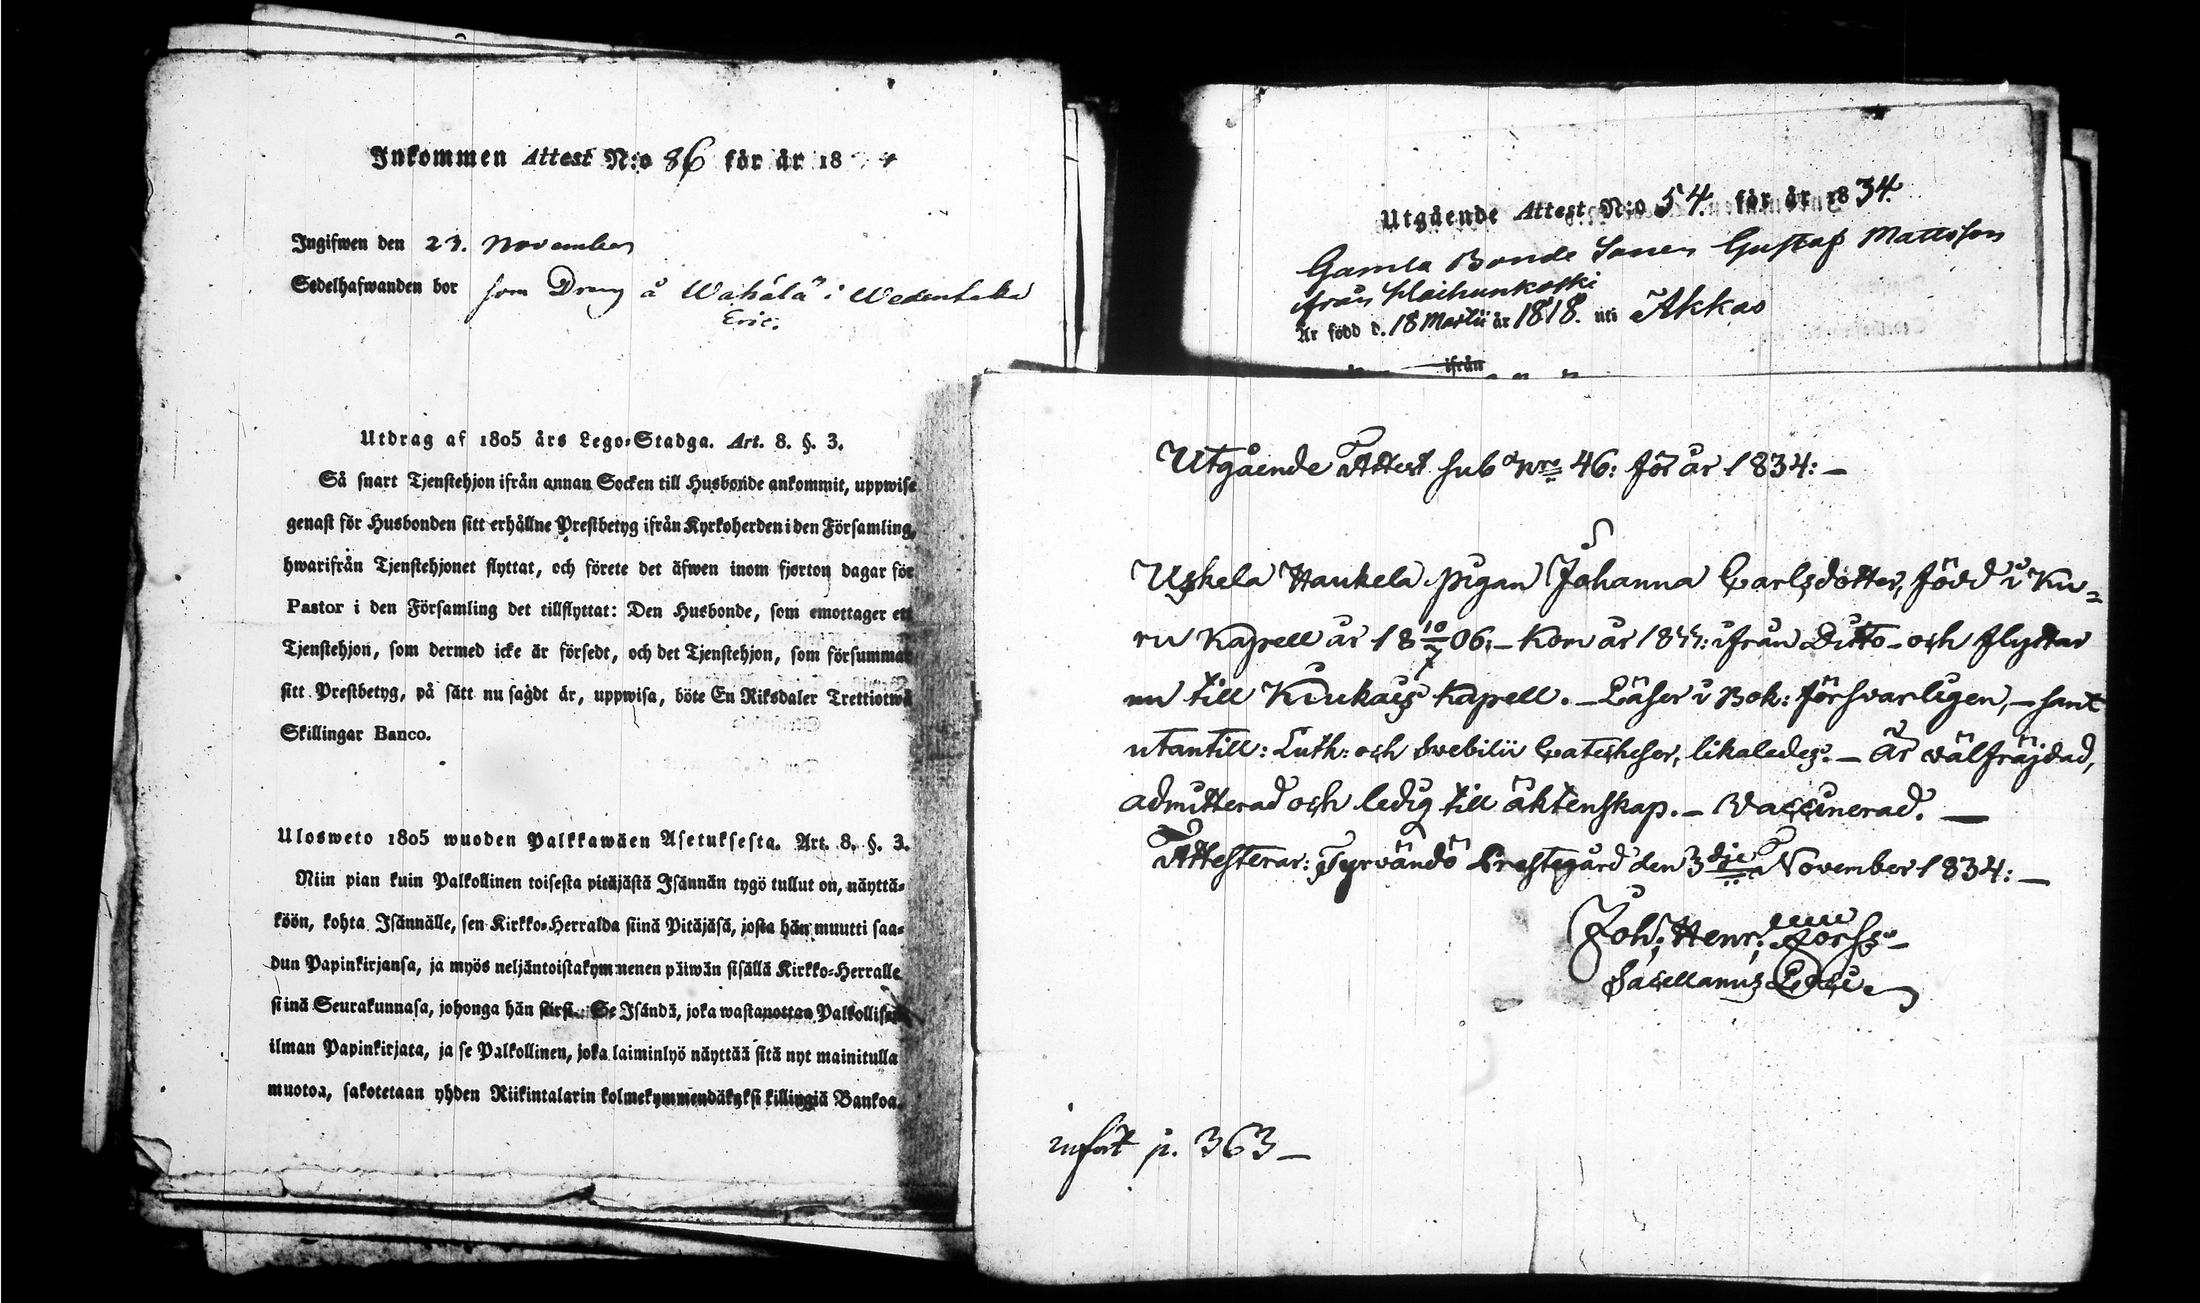 Inkommen Attest N:o 86 för år 18 4
Ingifwen den 23. November
Sedelhafwanden bor som Dreng å Wahálá i Wedentaka
Eric.
Utdrag af 1805 års Lego-Stadga. Art. 8. §. 3.
Så snart Tjenstehjon ifrån annan Socken till Husbonde ankommit, uppwise
genast för Husbonden sitt erhållne Prestbetyg ifrån Kyrkoherden i den Församling,
hwarifrån Tjenstehjonet flyttat, och förete det äfwen inom fjorton dagar för
Pastor i den Församling det tillflyttat: Den Husbonde, som emottager ett
Tjenstehjon, som dermed icke är försedt, och det Tjenstehjon, som försummar
sitt Prestbetyg, på sätt nu sagdt är, uppwisa, böte En Riksdaler Trettiotwå
Skillingar Banco.
Ulosweto 1805 wuoden Palkkawäen Asetuksesta. Art. 8. §. 3.
Niin pian kuin Palkollinen toisesta pitäjästä Isännän tygö tullut on, näyttä-
köön, kohta Isännälle, sen Kirkko-Herralda siinä Pitäjäsä, josta hän muutti saa-
dun Papinkirjansa, ja myös neljäntoistakymmenen päiwän sisällä Kirkko-Herralle
siinä Seurakunnasa, johonga hän siirsi. Se Isändä, joka wastanottaa Palkollisen
ilman Papinkirjata, ja se Palkollinen, joka laiminlyö näyttää sitä nyt mainitulla
muotoa, sakotetaan yhden Riikintalarin kolmekymmendäkaksi killingiä Bankoa.
Utgående Attest N:o 54. för år 1834.
Gamla Bonde Sonen Gustaf Mattsson
ifrån
Är född d. 18 Martii år 1818. uti Akkas
ifrån
Utgående Attest sub Nro 46: för år 1834: –
Uskela Haukela pigan Johanna Carlsdotter, född i Ku-
ru Kapell år 18 10/7 06; – Kom år ifrån Ditto – och flyttar
nu till Kiukais Kapell. – Läser i Bok: försvarligen, – samt
utantill: Luth: och Swebilii Catecheser, likaledes. – Är välfräjdad,
admitterad och ledig till äktenskap. – Vaccinerad. –
Attesterar: Tyrvändö Prestegård den 3dje November 1834: –
Joh: Henr:
Sacellanus Loci
infört p. 363 –